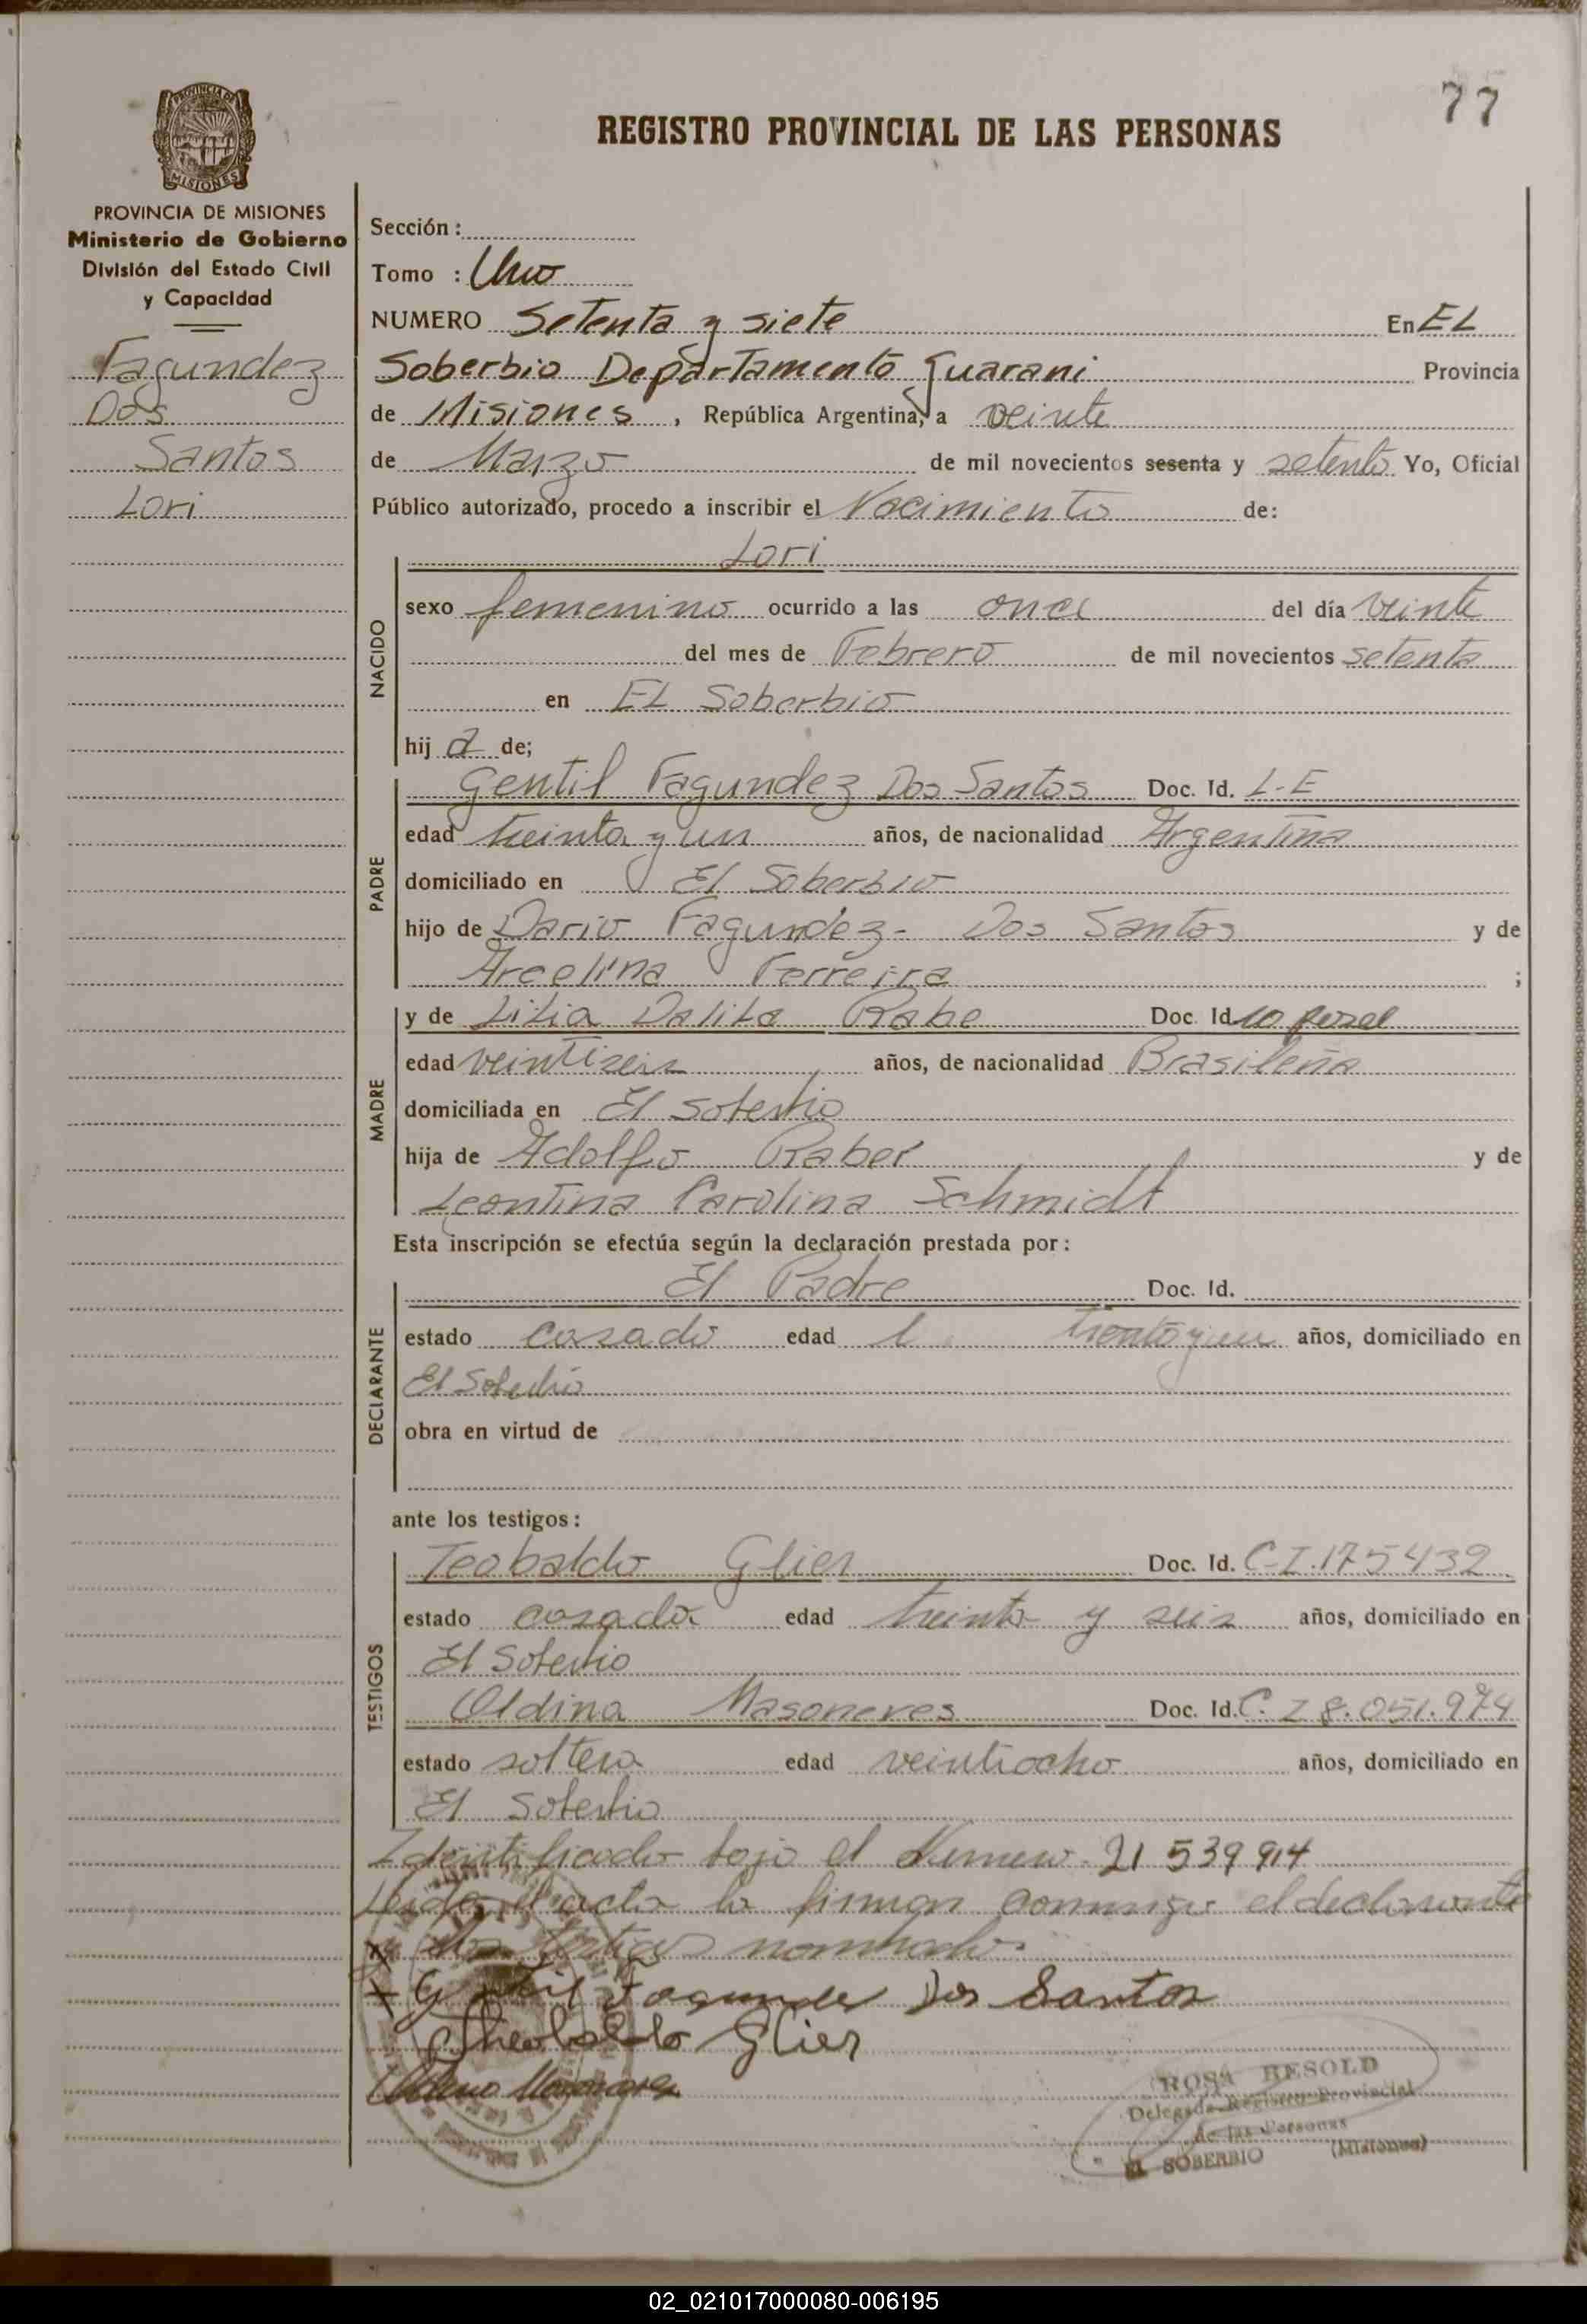 77
REGISTRO PROVINCIAL DE LAS PERSONAS
PROVINCIA DE MISIONES
MISIONES
PROVINCIA DE MISIONES
Ministerio de Gobierno
División del Estado Civil
y Capacidad
Fagundez
Dos
Santos
Lori
Sección :
Tomo : Uno
NUMERO Setenta y siete En EL
Soberbio Departamento Guarani Provincia
de Misiones , República Argentina, a veinte
de Marzo de mil novecientos sesenta y setenta Yo, Oficial
Público autorizado, procedo a inscribir el Nacimiento de:
NACIDO
Lori
sexo femenino ocurrido a las once del día veinte
del mes de Febrero de mil novecientos setenta
en EL Soberbio
hij a de;
PADRE
Gentil Fagundez Dos Santos Doc. Id. L-E
edad treinta y un años, de nacionalidad Argentina
domiciliado en El Soberbio
hijo de Dario Fagundez - Dos Santos y de
Arcelina Ferreira ;
MADRE
y de Dalila Rabe Doc. Id
edad veintiseis años, de nacionalidad Brasileña
domiciliada en El Soberbio
hija de Adolfo Raber y de
Leontina Carolina Schmidt
Esta inscripción se efectúa según la declaración prestada por :
DECLARANTE
El Padre Doc. Id.
estado casado edad treinta y un años, domiciliado en
El Soberbio
obra en virtud de
ante los testigos :
TESTIGOS
Teobaldo Glier Doc. Id. C-I.175432
estado casado edad treinta y seis años, domiciliado en
El Soberbio
Oldina Masoneves Doc. Id. C. I 8.051.974
estado soltera edad veintiocho años, domiciliado en
El Soberbio
Identificado bajo el Numero 21 539 914
Leida el acta la firman conmigo el declarante
y los testigos nombrados
Gentil Fagundez Dos Santos
Theobaldo Glier
ROSA RESOLD
Delegada Registro Provincial
de las Personas
EL SOBERBIO (Misiones)
02_021017000080-006195